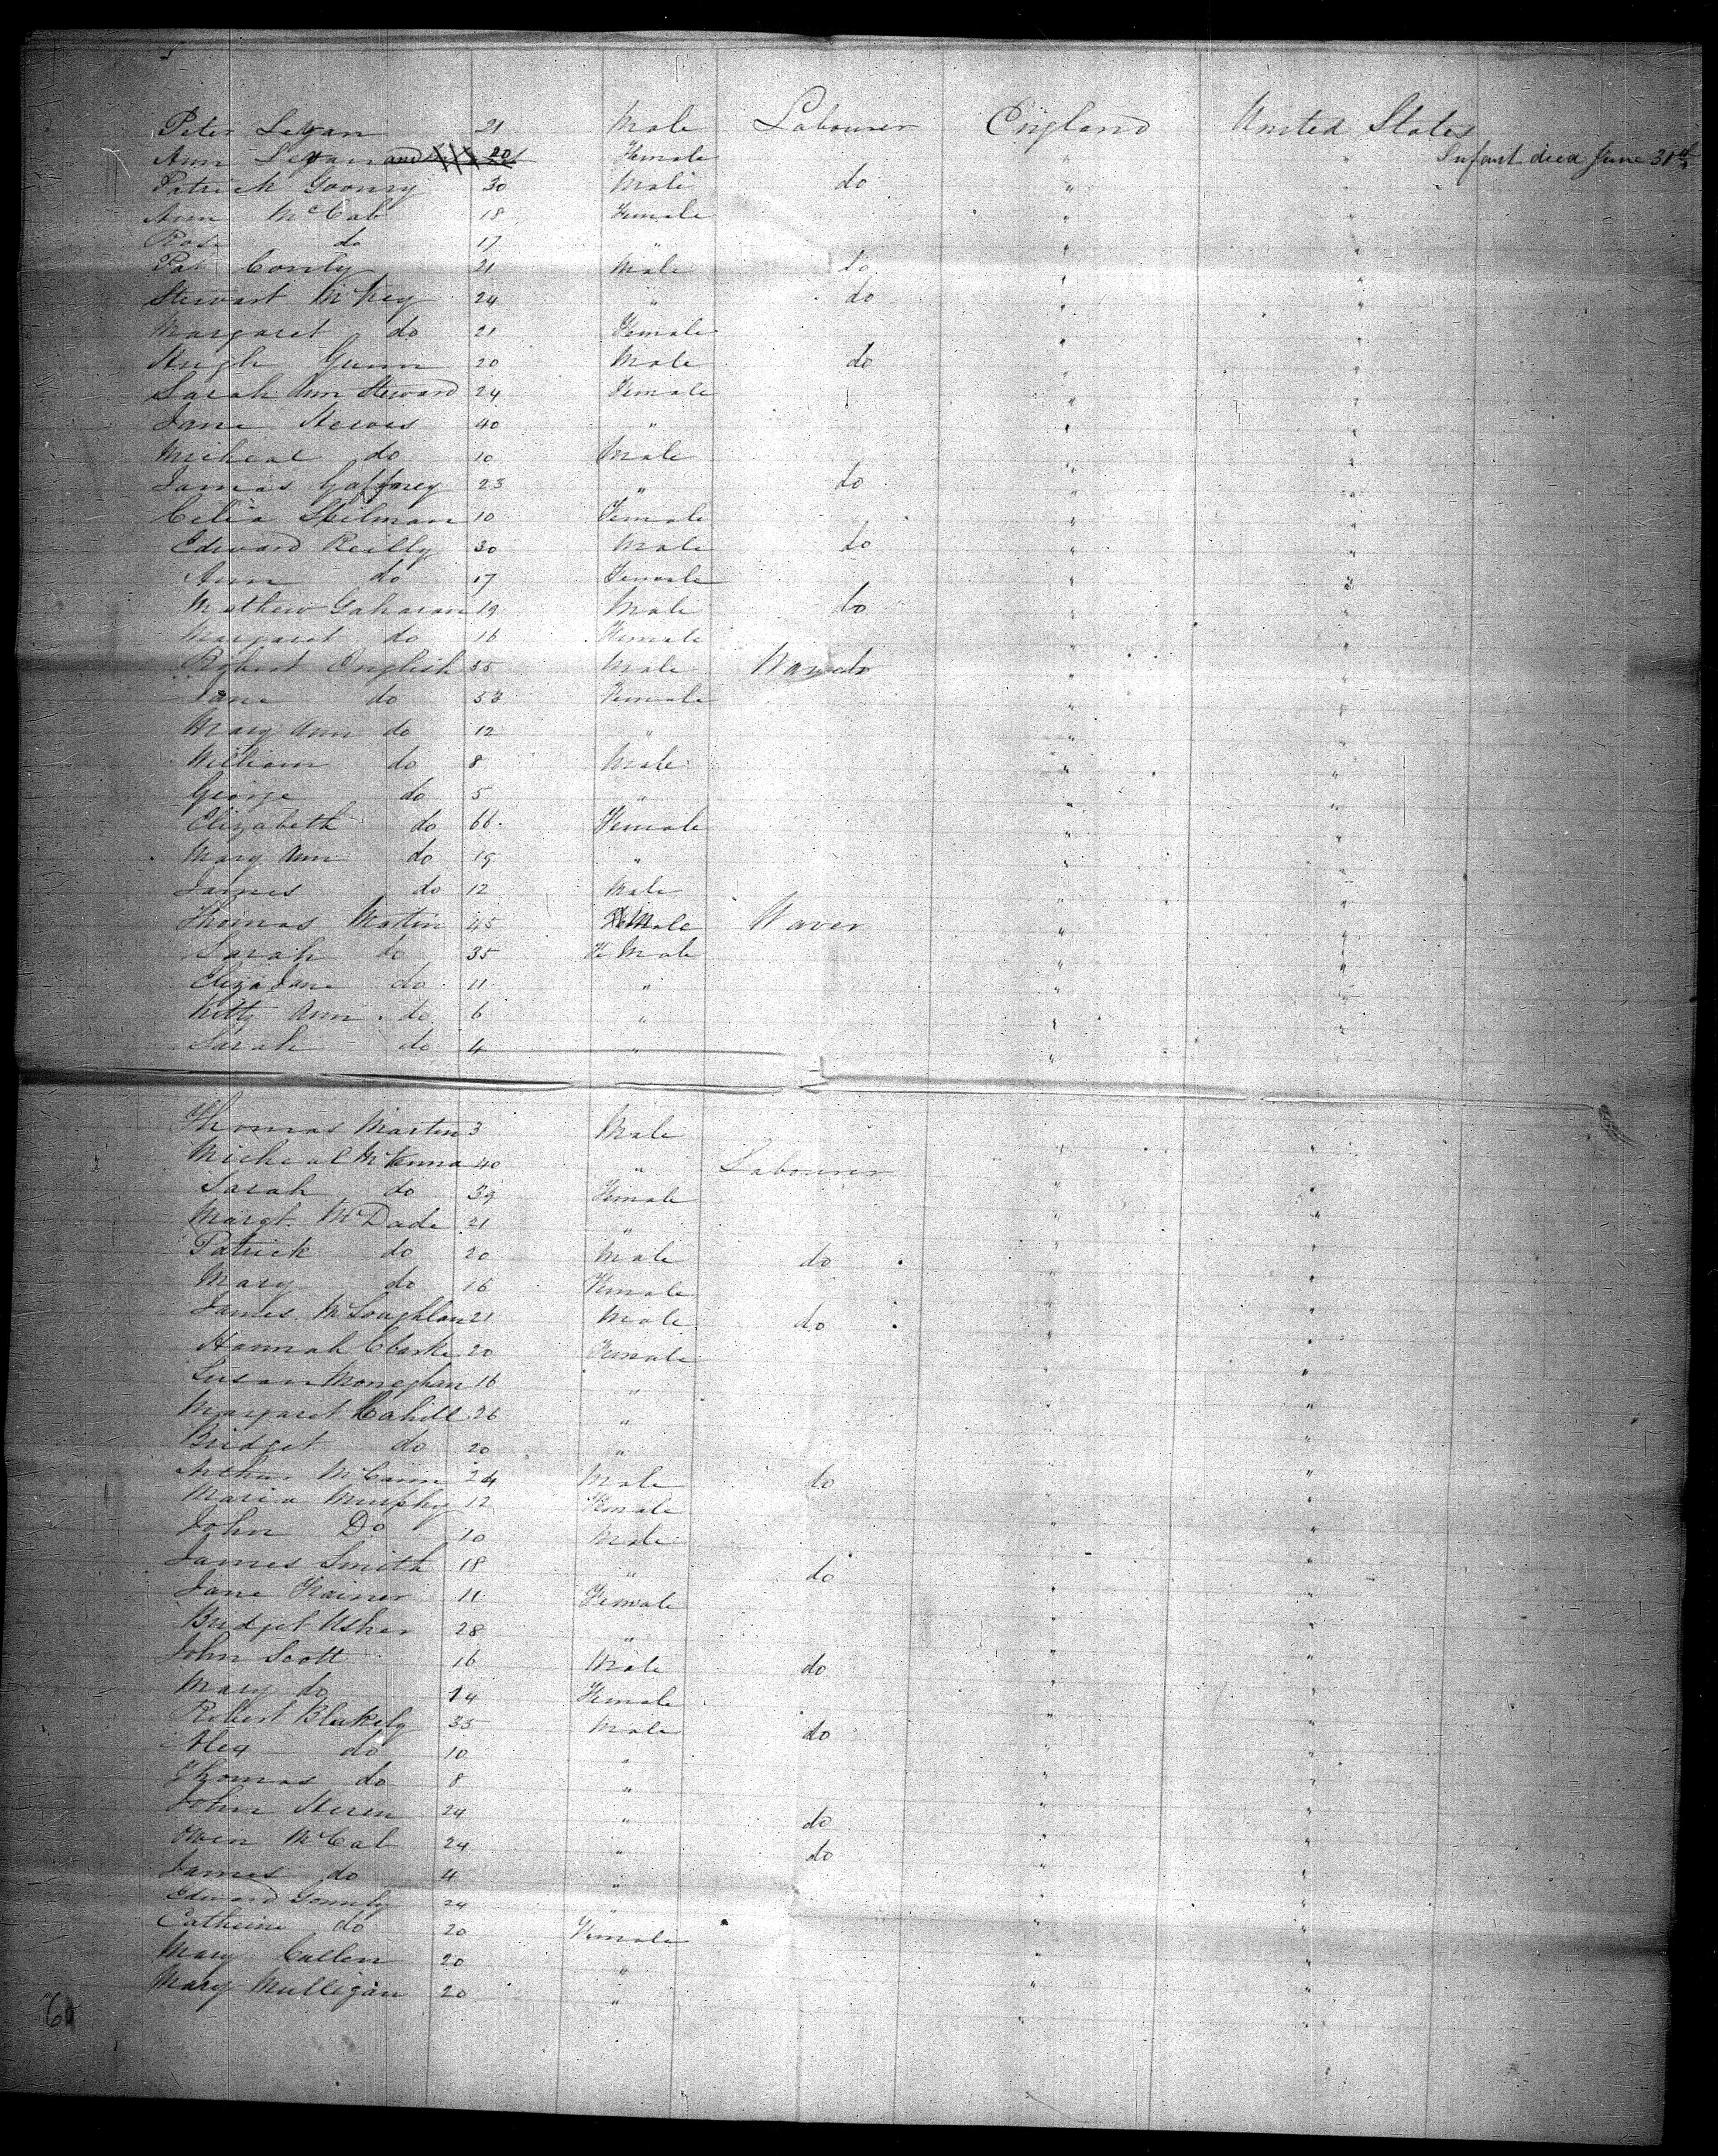 Peter Legan 21 Male Labourer England United States
Ann Legan and 20 Female " " Infant died June 31st
Patrick Goonry 30 Male do "
Ann McCab 18 Female " "
Rose do 17 " " "
Pat Conly 21 Male do " "
Stewart McKey 24 " do " "
Margaret do 21 Female " "
Hugh Gunn 20 Male do " "
Sarah Ann Steward 24 Female " "
Jane Steves 40 " " "
Micheal do 10 Male " "
James Gaffney 23 " do " "
Celia Spilman 10 Female " "
Edward Reilly 30 Male do " "
Ann do 17 Female " "
Mathew Gaharan 19 Male do " "
Margaret do 16 Female " "
Robert English 55 Male " "
Jane do 53 Female " "
Mary Ann do 12 " " "
William do 8 Male " "
George do 5 " " "
Elizabeth do 66 Female " "
Mary Ann do 19 " " "
James do 12 Male " "
Thomas Martin 45 Male Waver " "
Sarah do 35 Fe Male " "
Eliza Jane do 11 " " "
Kitty Ann do 6 " " "
Sarah do 4 " "
Thomas Martin 3 Male " "
Micheal McKenna 40 " Labourer " "
Sarah do 39 Female " "
Margt. McDade 21 " " "
Patrick do 20 Male do " "
Mary do 16 Female " "
James McLoughlan 21 Male do " "
Hannah Clarke 20 Female " "
Susan Moneghan 16 " " "
Margaret Cahill 26 " " "
Bridget do 20 " " "
Arthur McCann 24 Male do " "
Maria Murphy 12 Female " "
John Do 10 Male " "
James Smith 18 " do " "
Jane Trainer 11 Female " "
Bridget Usher 28 " " "
John Scott 16 Male do " "
Mary do 14 Female " "
Robert Blakely 35 Male do " "
Alex do 10 " " "
Thomas do 8 " " "
John Steren 24 " do " "
Owen McCab 24 " do " "
James do 4 " " "
Edward Gonnely 24 " " "
Catherine do 20 Female " "
Mary Cullen 20 " " "
Mary Mulligan 20 " " "